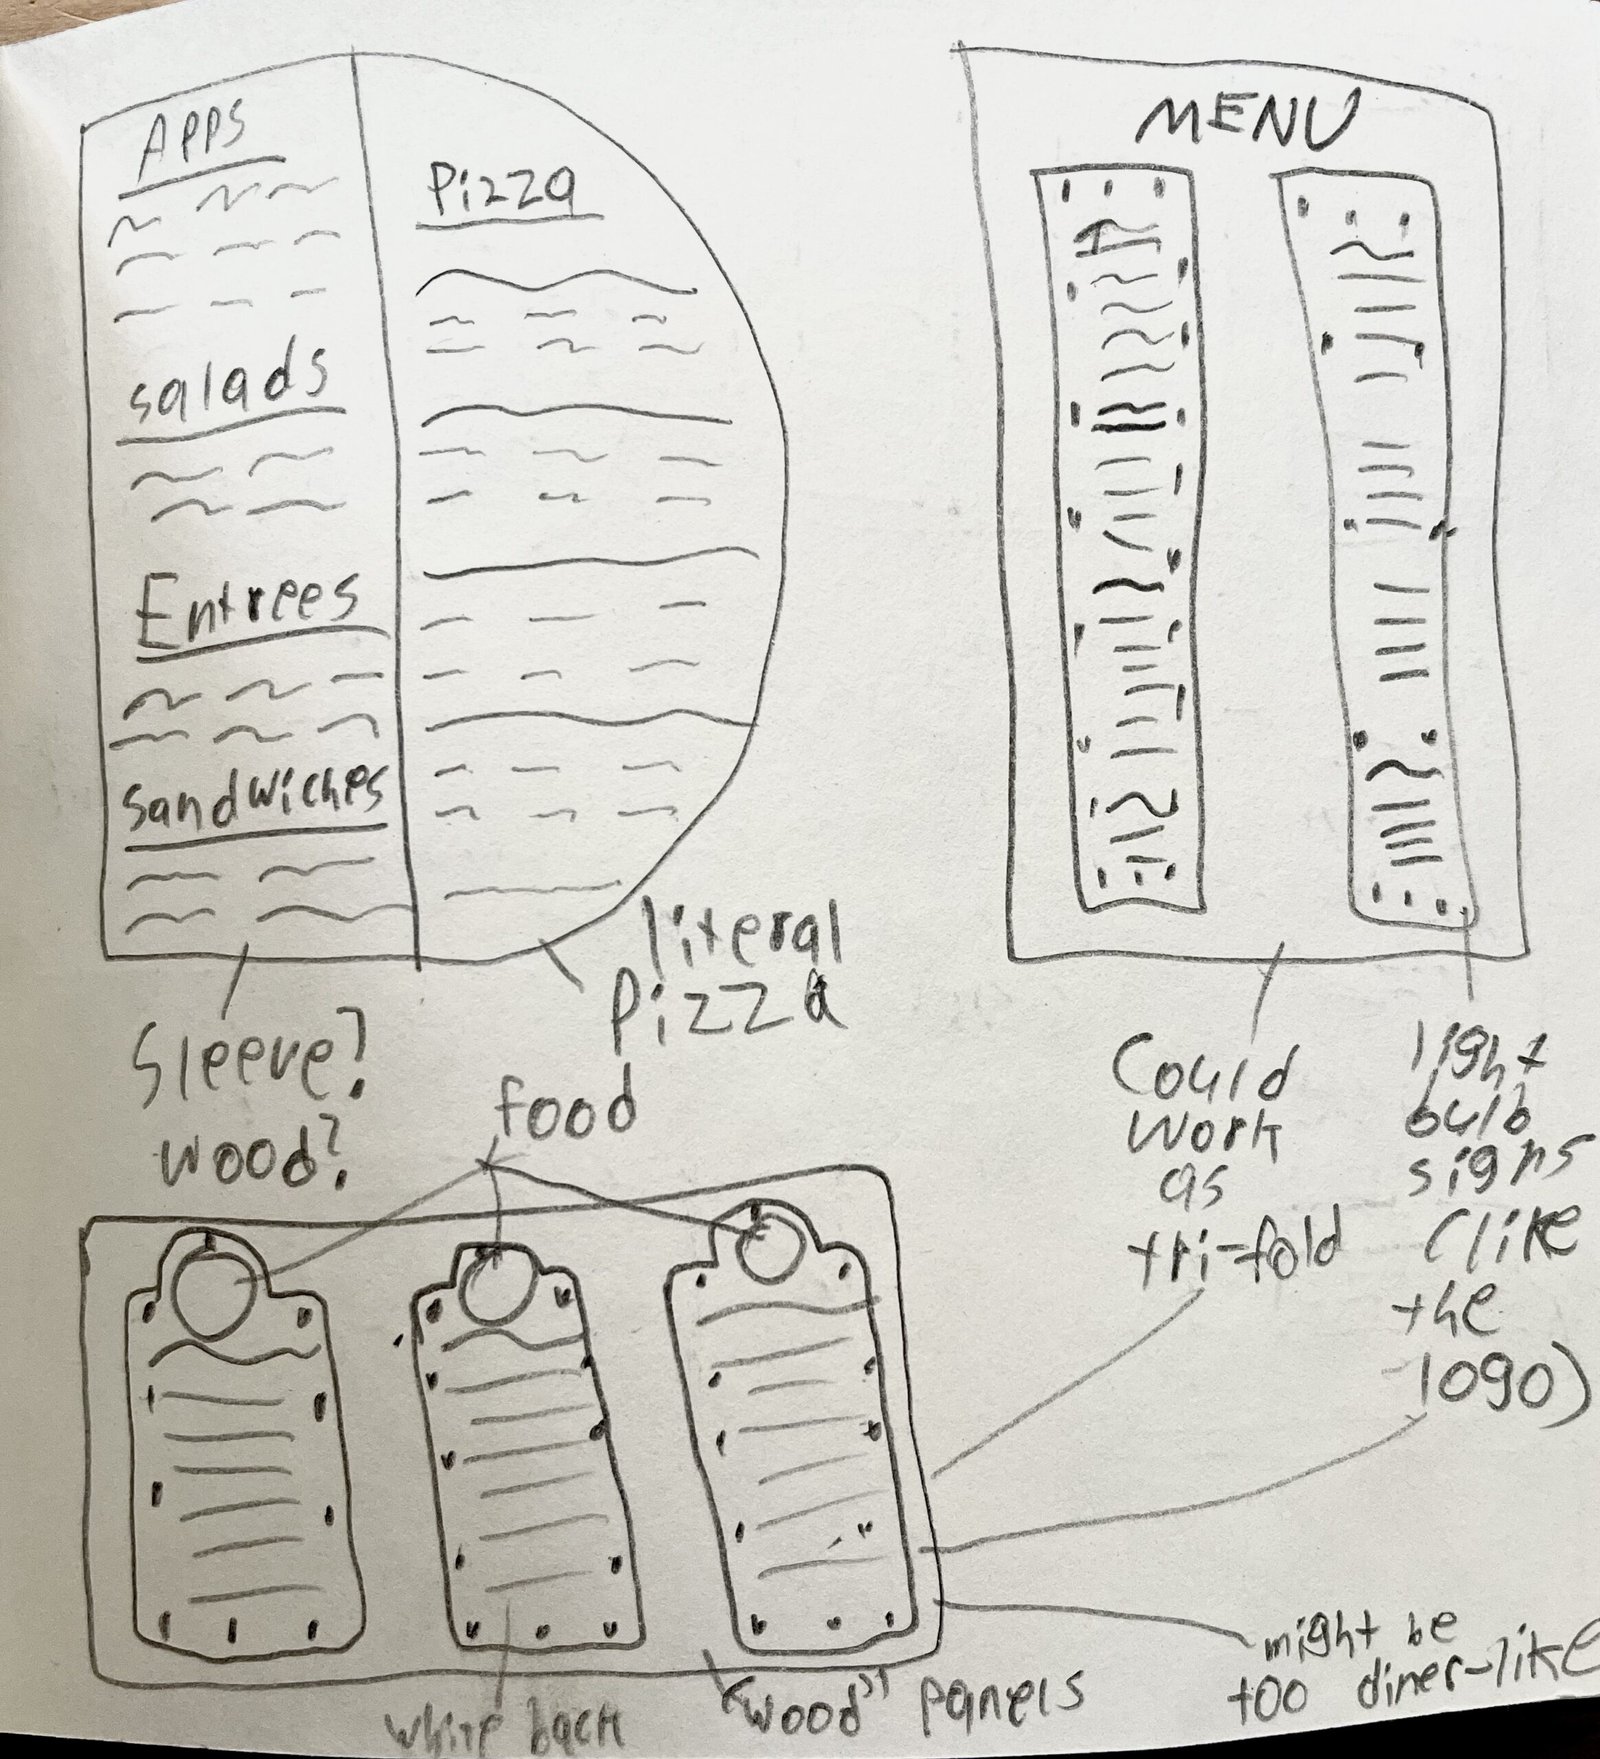 Apps
salads
Entrees
sandwiches
Pizza
MENU
Sleeve?
wood?
literal
Pizza
Could
work
as
tri-fold
light
bulb
signs
(like
the
logo)
food
white back
"wood" panels
might be
too diner-like